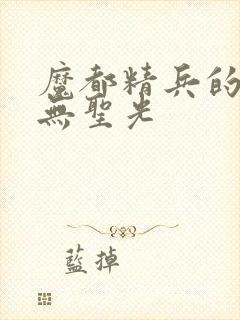 魔都精兵的
無聖光
藍掉